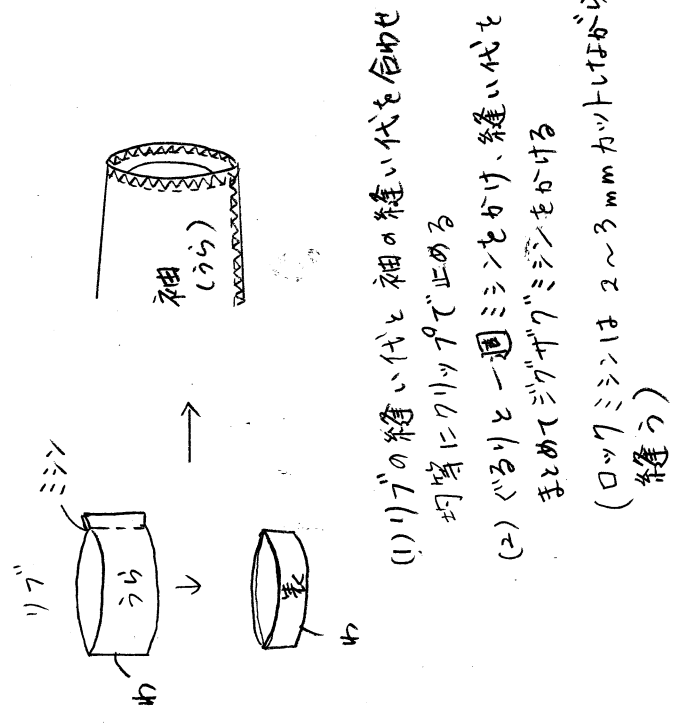 リブ
ミシン
うら
わ
表
わ
袖
(うら)
(1) リブの縫い代と袖の縫い代を合わせ
均等にクリップで止める
(2) ぐるりと一週ミシンをかけ、縫い代を
まとめてジグザグミシンをかける
(ロックミシンは2〜3mmカットしながら
縫う)